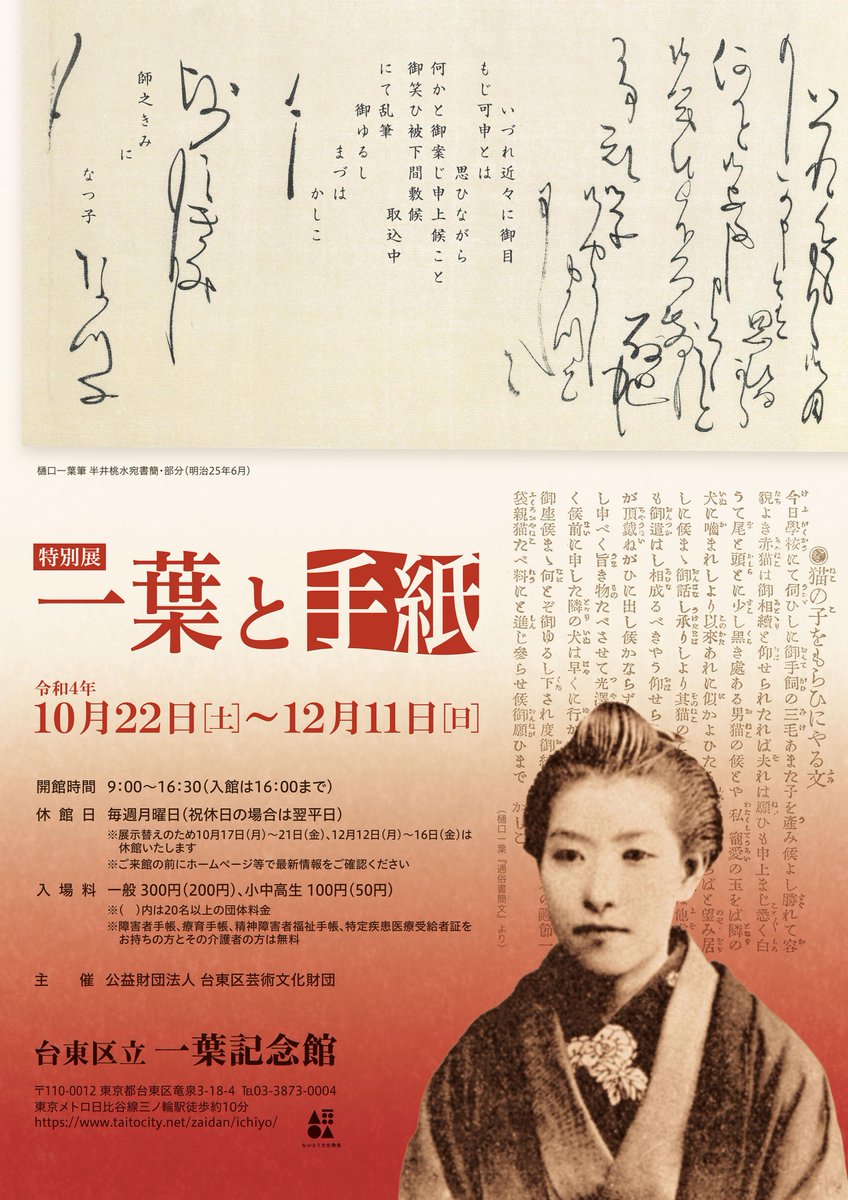 いづれ近々に御目
もじ可申とは
思ひながら
何かと御案じ申上候こと
御笑ひ被下間敷候
取込中
にて乱筆
御ゆるし
まづは
かしこ
師之きみ
に
なつ子
樋口一葉筆 半井桃水宛書簡・部分(明治25年6月)
特別展
一葉と手紙
令和4年
10月22日[土]～12月11日[日]
開館時間 9:00～16:30(入館は16:00まで)
休館日 毎週月曜日(祝休日の場合は翌平日)
※展示替えのため10月17日(月)～21日(金)、12月12日(月)～16日(金)は
休館いたします
※ご来館の前にホームページ等で最新情報をご確認ください
入場料 一般 300円(200円)、小中高生 100円(50円)
※( )内は20名以上の団体料金
※障害者手帳、療育手帳、精神障害者福祉手帳、特定疾患医療受給者証を
お持ちの方とその介護者の方は無料
主催 公益財団法人 台東区芸術文化財団
台東区立 一葉記念館
〒110-0012 東京都台東区竜泉3-18-4 TEL03-3873-0004
東京メトロ日比谷線三ノ輪駅徒歩約10分
https://www.taitocity.net/zaidan/ichiyo/
たいとう文化発信
猫の子をもらひにやる文
今日學校にて伺ひしに御手飼の三毛あまた子を產み候よし勝れて容
貌よき赤猫は御相續と仰せられたれば夫れは願ひも申上まじ悉く白
うて尾と頭とに少し黑き處ある男猫の候とや 私 寵愛の玉をば隣の
犬に嚙まれしより以來あれに似かよひた ばと望み居
しに候まゝ御話し承りしより其猫の 他
も御遣はし相成るべきやう仰せら
が頂戴ねがひに出し候かならず
し申べく旨き物たべさせて光澤
く候前に申した隣の犬は早くに行
御座候まゝ何とぞ御ゆるし下され度御
袋親猫たべ料にと進じ參らせ候御願ひまで かしこ
(樋口一葉『通俗書簡文』より)